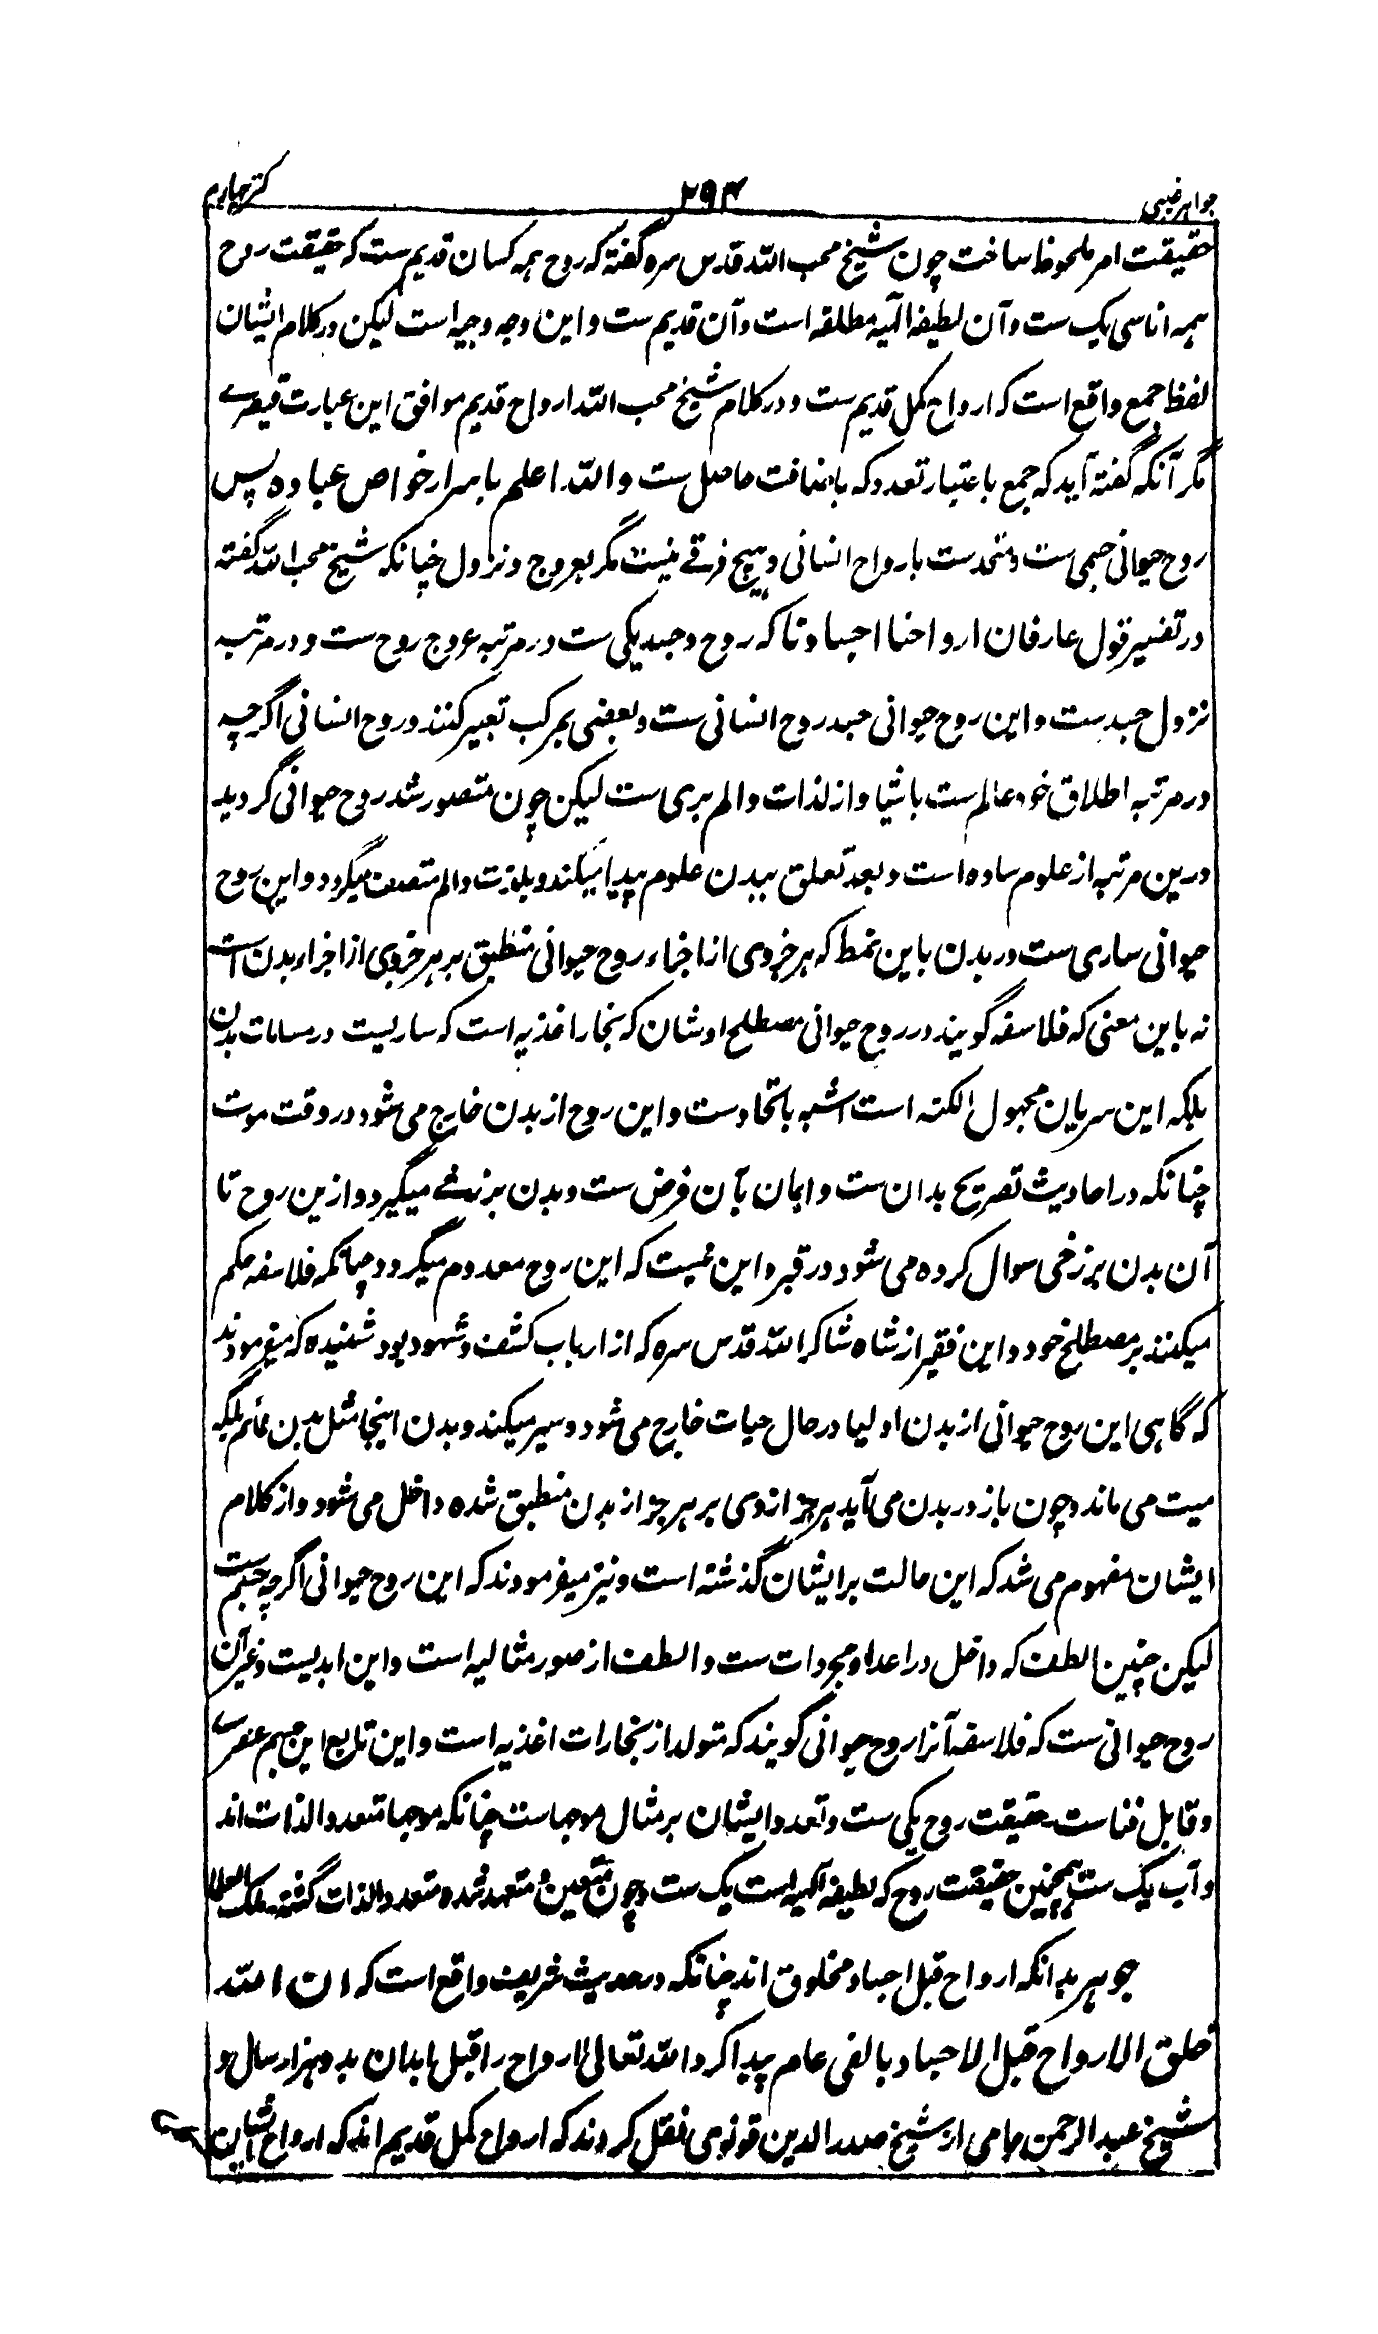 جواهر غیبی ۲۹۴ کنز چهارم
حقیقت امر ملحوظ ساخت چون شیخ محب الله قدس سره گفته که روح همه کسان قدیم ست که حقیقت روح
همه اناسی یک ست و آن لطیفه الٓهیه مطلقه است و آن قدیم ست و این وجه وجیه است لیکن در کلام ایشان
لفظ جمع واقع است که ارواح کمل قدیم ست و در کلام شیخ محب الله ارواح قدیم موافق این عبارت قیصرے
مگر آنکه گفته آید که جمع باعتبار تعدد که باضافت حاصل ست والله اعلم باسرار خواص عباده پس
روح حیوانی جسمی ست و متحد ست بارواح انسانی و هیچ فرقے نیست مگر بعروج و نزول چنانکه شیخ محب الله گفته
در تفسیر قول عارفان ارواحنا اجسادنا که روح و جسد یکی ست در مرتبه عروج روح ست و در مرتبه
نزول جسد ست و این روح حیوانی جسد روح انسانی ست و بعضی بمرکب تعبیر کنند و روح انسانی اگرچه
در مرتبه اطلاق خود عالم ست باشیا و از لذات و الم بری ست لیکن چون متصور شد روح حیوانی گردید
درین مرتبه از علوم ساده است و بعد تعلق ببدن علوم پیدا میکند و بلذت و الم متصف میگردد و این روح
حیوانی ساری ست در بدن باین نمط که هر جزوی از اجزاء روح حیوانی منطبق بر هر جزوی از اجزاء بدن است
نه باین معنی که فلاسفه گویند در روح حیوانی مصطلح اوشان که بخار اغذیه است که ساریست در مسامات بدن
بلکه این سریان مجهول الکنه است اشبه باتحاد ست و این روح از بدن خارج می شود در وقت موت
چنانکه در احادیث تصریح بدان ست و ایمان بآن فرض ست و بدن برزخے میگیرد و ازین روح تا
آن بدن برزخی سوال کرده می شود در قبر و این نیست که این روح معدوم میگردد چنانکه فلاسفه حکم
میکنند بر مصطلح خود و این فقیر از شاه شاکر الله قدس سره که از ارباب کشف و شهود بود شنیده که میفرمودند
که گاهی این روح حیوانی از بدن اولیا در حال حیات خارج می شود و سیر میکند و بدن اینجا مثل بدن نائم بلکه
میت می ماند و چون باز در بدن می آید هر جز ازوی بر هر جز از بدن منطبق شده داخل می شود و از کلام
ایشان مفهوم می شد که این حالت بر ایشان گذشته است و نیز میفرمودند که این روح حیوانی اگرچه جسم ست
لیکن چنین الطف که داخل در اعداد مجردات ست و الطف از صور مثالیه است و این ابدیست و غیر آن
روح حیوانی ست که فلاسفه آنرا روح حیوانی گویند که متولد از بخارات اغذیه است و این تابع این جسم عنصرے
و قابل فنا ست حقیقت روح یکی ست و تعدد ایشان بر مثال موجها ست چنانکه موجها متعدد الذات اند
و آب یک ست همچنین حقیقت روح که لطیفه الٓهیه است یک ست و چون متعین و متعدد شده متعدد الذات گشته
جوهر بدانکه ارواح قبل اجساد مخلوق اند چنانکه در حدیث شریف واقع است که ان الله
خلق الارواح قبل الاجساد بالفی عام پیدا کرد الله تعالی ارواح را قبل ابدان بدو هزار سال و
شیخ عبد الرحمن جامی از شیخ صدر الدین قونوی نقل کردند که ارواح کمل قدیم اند که ارواح ایشان